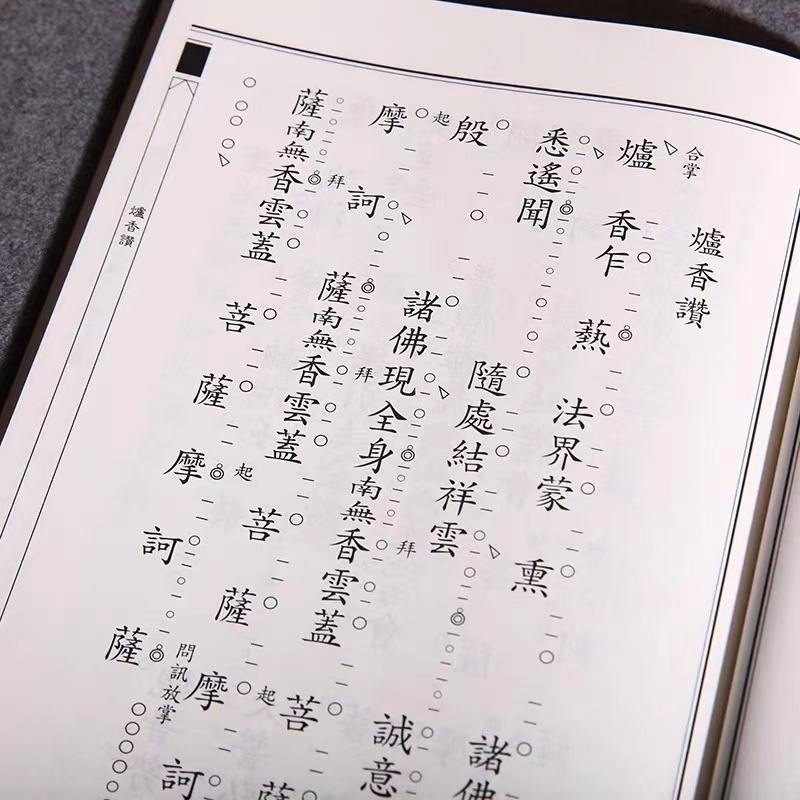 爐香讚
合掌
爐香乍爇法界蒙熏諸佛
悉遙聞隨處結祥雲誠意
殷諸佛現全身南無香雲蓋菩薩
拜
起
摩訶薩南無香雲蓋菩薩摩訶
拜
起
薩南無香雲蓋菩薩摩訶薩
拜
起
問訊放掌
爐香讚